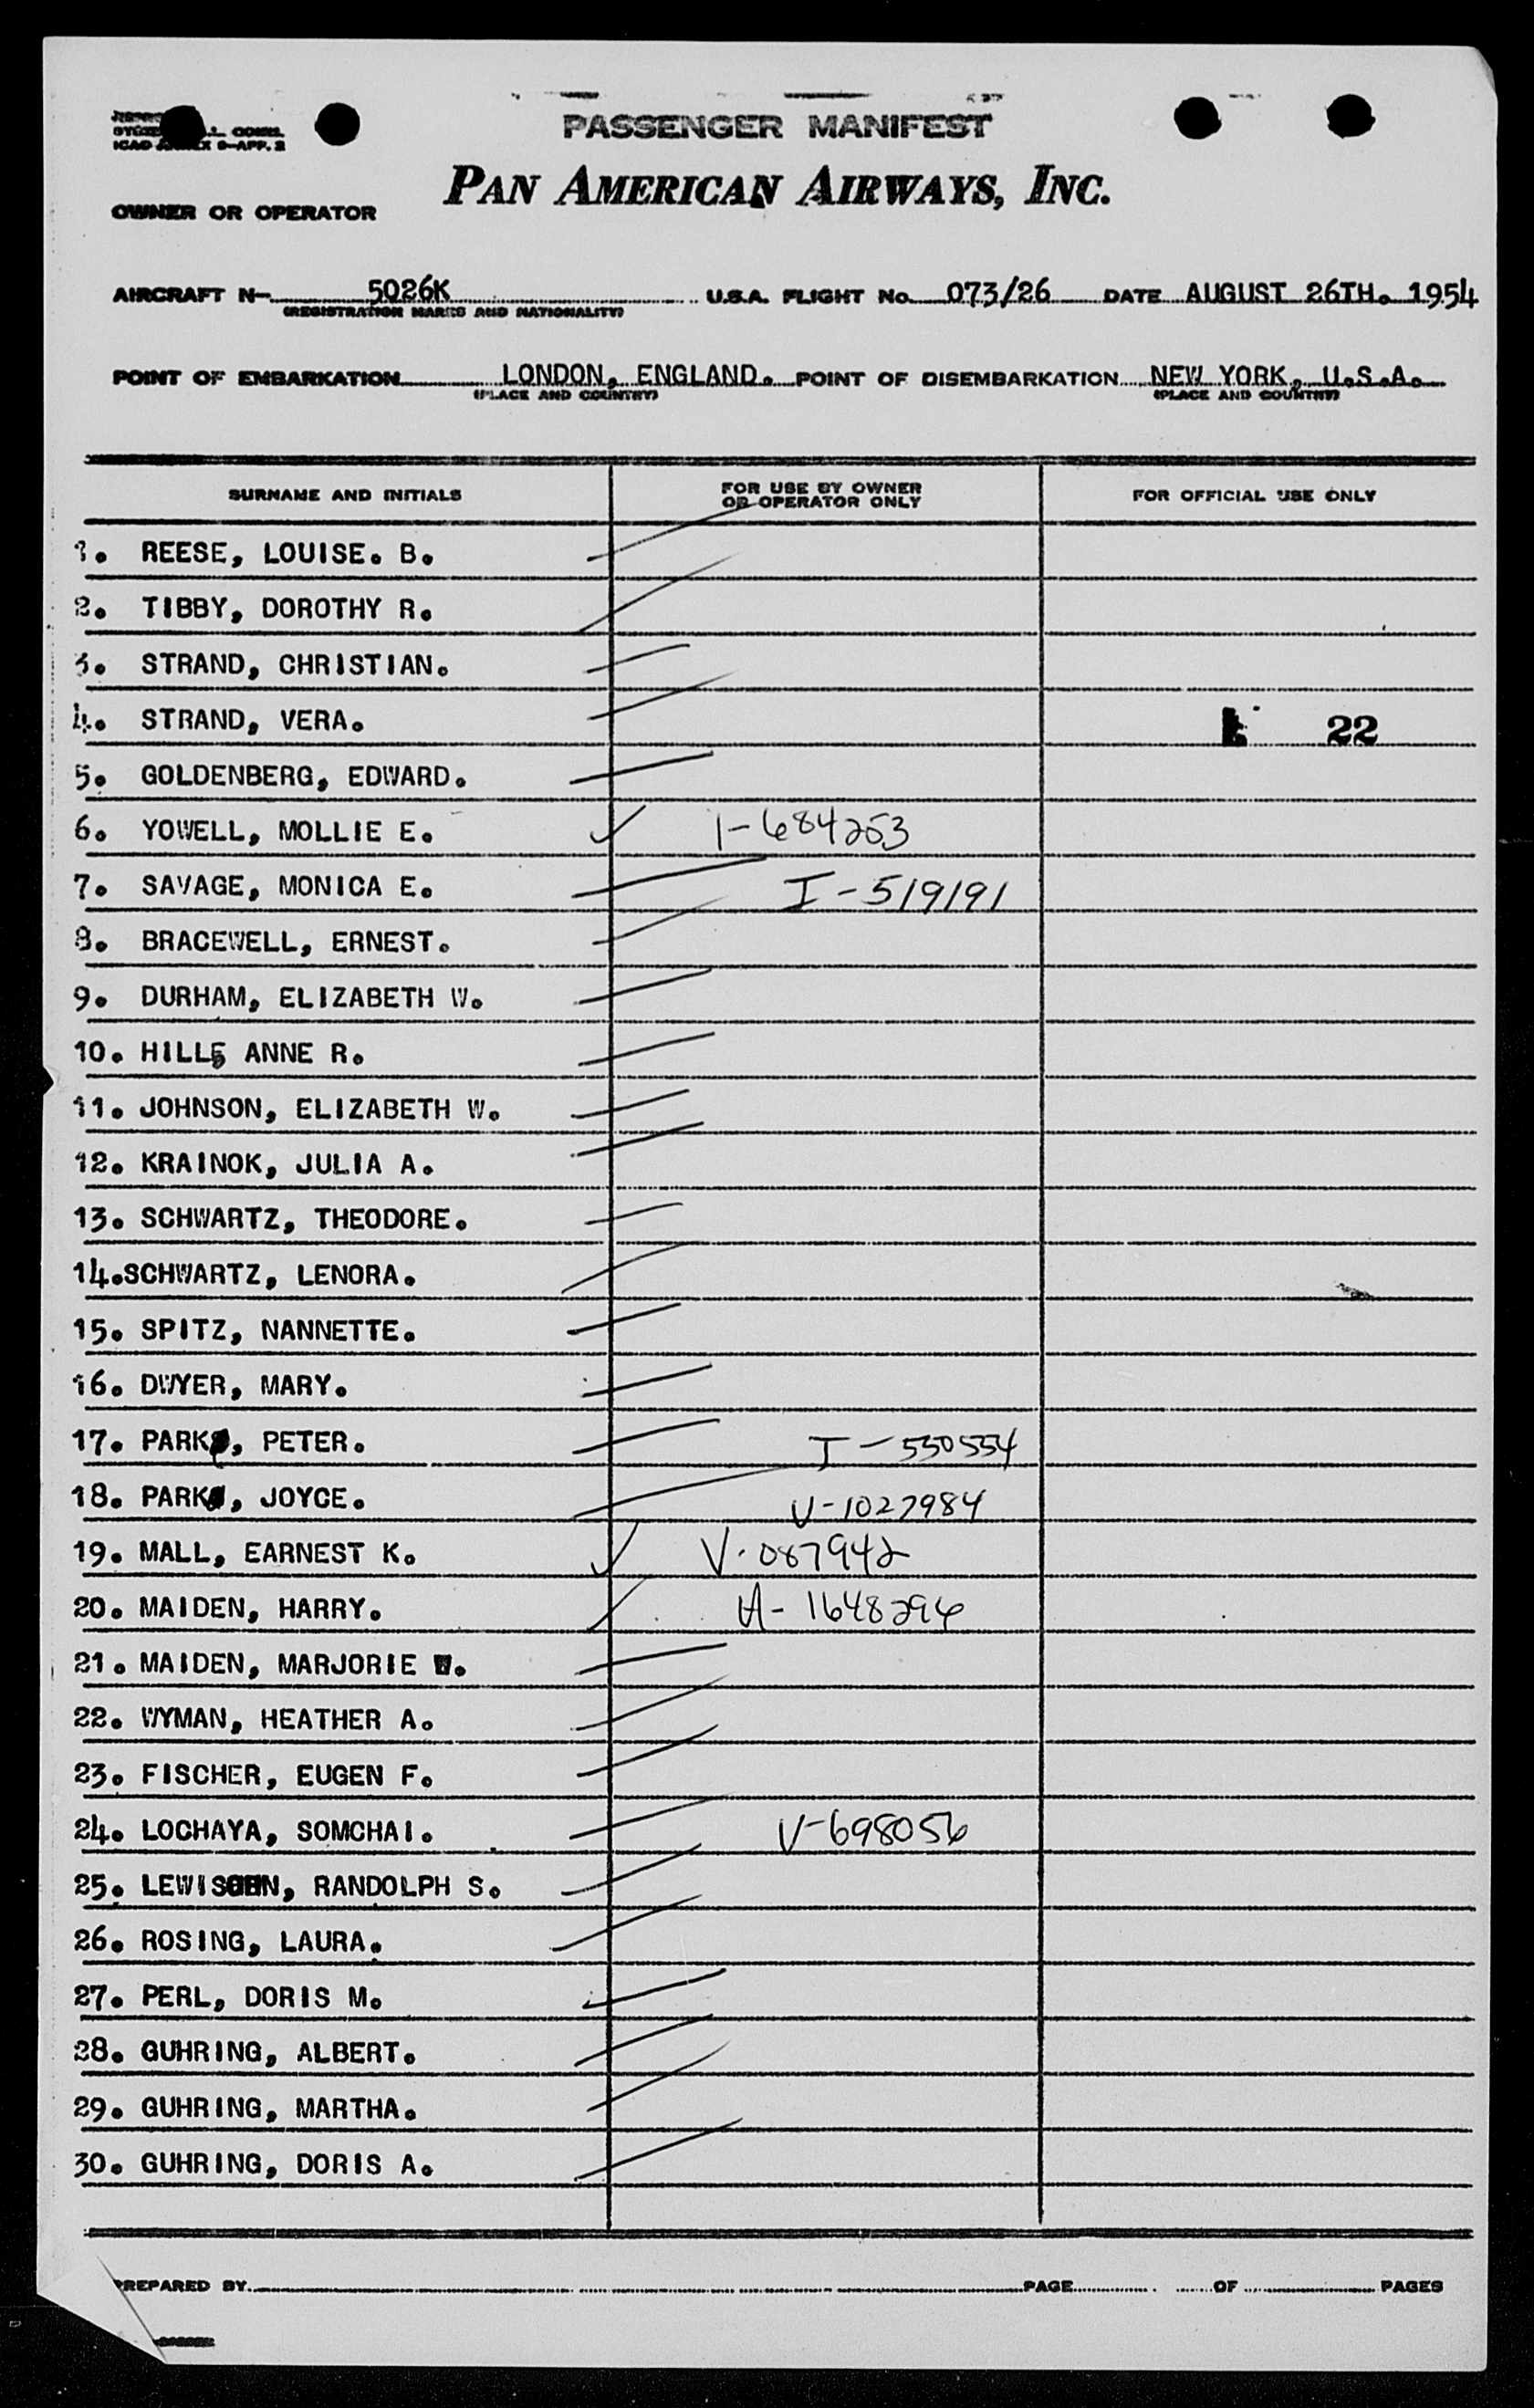 PASSENGER MANIFEST
ICAO ANNEX 9-APP. 2
PAN AMERICAN AIRWAYS, INC.
OWNER OR OPERATOR
AIRCRAFT N- 5026K U.S.A. FLIGHT No. 073/26 DATE AUGUST 26TH. 1954
(REGISTRATION MARKS AND NATIONALITY)
POINT OF EMBARKATION LONDON, ENGLAND. POINT OF DISEMBARKATION NEW YORK, U.S.A.
(PLACE AND COUNTRY) (PLACE AND COUNTRY)
SURNAME AND INITIALS FOR USE BY OWNER OR OPERATOR ONLY FOR OFFICIAL USE ONLY
1. REESE, LOUISE. B.
2. TIBBY, DOROTHY R.
3. STRAND, CHRISTIAN.
4. STRAND, VERA. 22
5. GOLDENBERG, EDWARD.
6. YOWELL, MOLLIE E. ✓ I-684253
7. SAVAGE, MONICA E. I-519191
8. BRACEWELL, ERNEST.
9. DURHAM, ELIZABETH W.
10. HILL, ANNE R.
11. JOHNSON, ELIZABETH W.
12. KRAINOK, JULIA A.
13. SCHWARTZ, THEODORE.
14.SCHWARTZ, LENORA.
15. SPITZ, NANNETTE.
16. DWYER, MARY.
17. PARK, PETER. I-530554
18. PARK, JOYCE. V-1027984
19. MALL, EARNEST K. ✓ V-087942
20. MAIDEN, HARRY. A-1648296
21. MAIDEN, MARJORIE W.
22. WYMAN, HEATHER A.
23. FISCHER, EUGEN F.
24. LOCHAYA, SOMCHAI. V-698056
25. RANDOLPH S.
26. ROSING, LAURA.
27. PERL, DORIS M.
28. GUHRING, ALBERT.
29. GUHRING, MARTHA.
30. GUHRING, DORIS A.
PREPARED BY PAGE OF PAGES